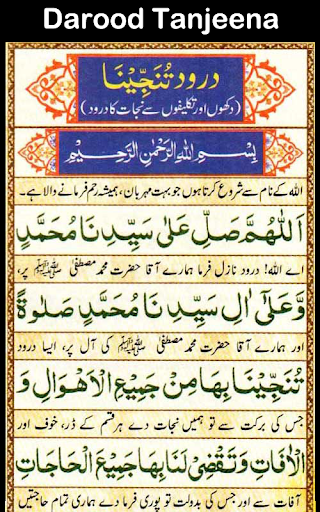 Darood Tanjeena
درود تُنَجِّيْنَا
(دکھوں اور تکلیفوں سے نجات کا درود)
بِسْمِ اللهِ الرَّحْمٰنِ الرَّحِيْمِ
اللہ کے نام سے شروع کرتا ہوں جو بہت مہربان، ہمیشہ رحم فرمانے والا ہے۔
اَللّٰهُمَّ صَلِّ عَلٰى سَيِّدِنَا مُحَمَّدٍ
اے اللہ! درود نازل فرما ہمارے آقا حضرت محمد مصطفیٰ ﷺ پر،
وَّعَلٰٓى اٰلِ سَيِّدِنَا مُحَمَّدٍ صَلٰوةً
اور ہمارے آقا حضرت محمد مصطفیٰ ﷺ کی آل پر، ایسا درود
تُنَجِّيْنَا بِهَا مِنْ جَمِيْعِ الْاَهْوَالِ وَ
جس کی برکت سے تو ہمیں نجات دے ہر قسم کے ڈر، خوف اور
الْاٰفَاتِ وَتَقْضِيْ لَنَا بِهَا جَمِيْعَ الْحَاجَاتِ
آفات سے اور جس کی بدولت تو پوری فرما دے ہماری تمام حاجتیں